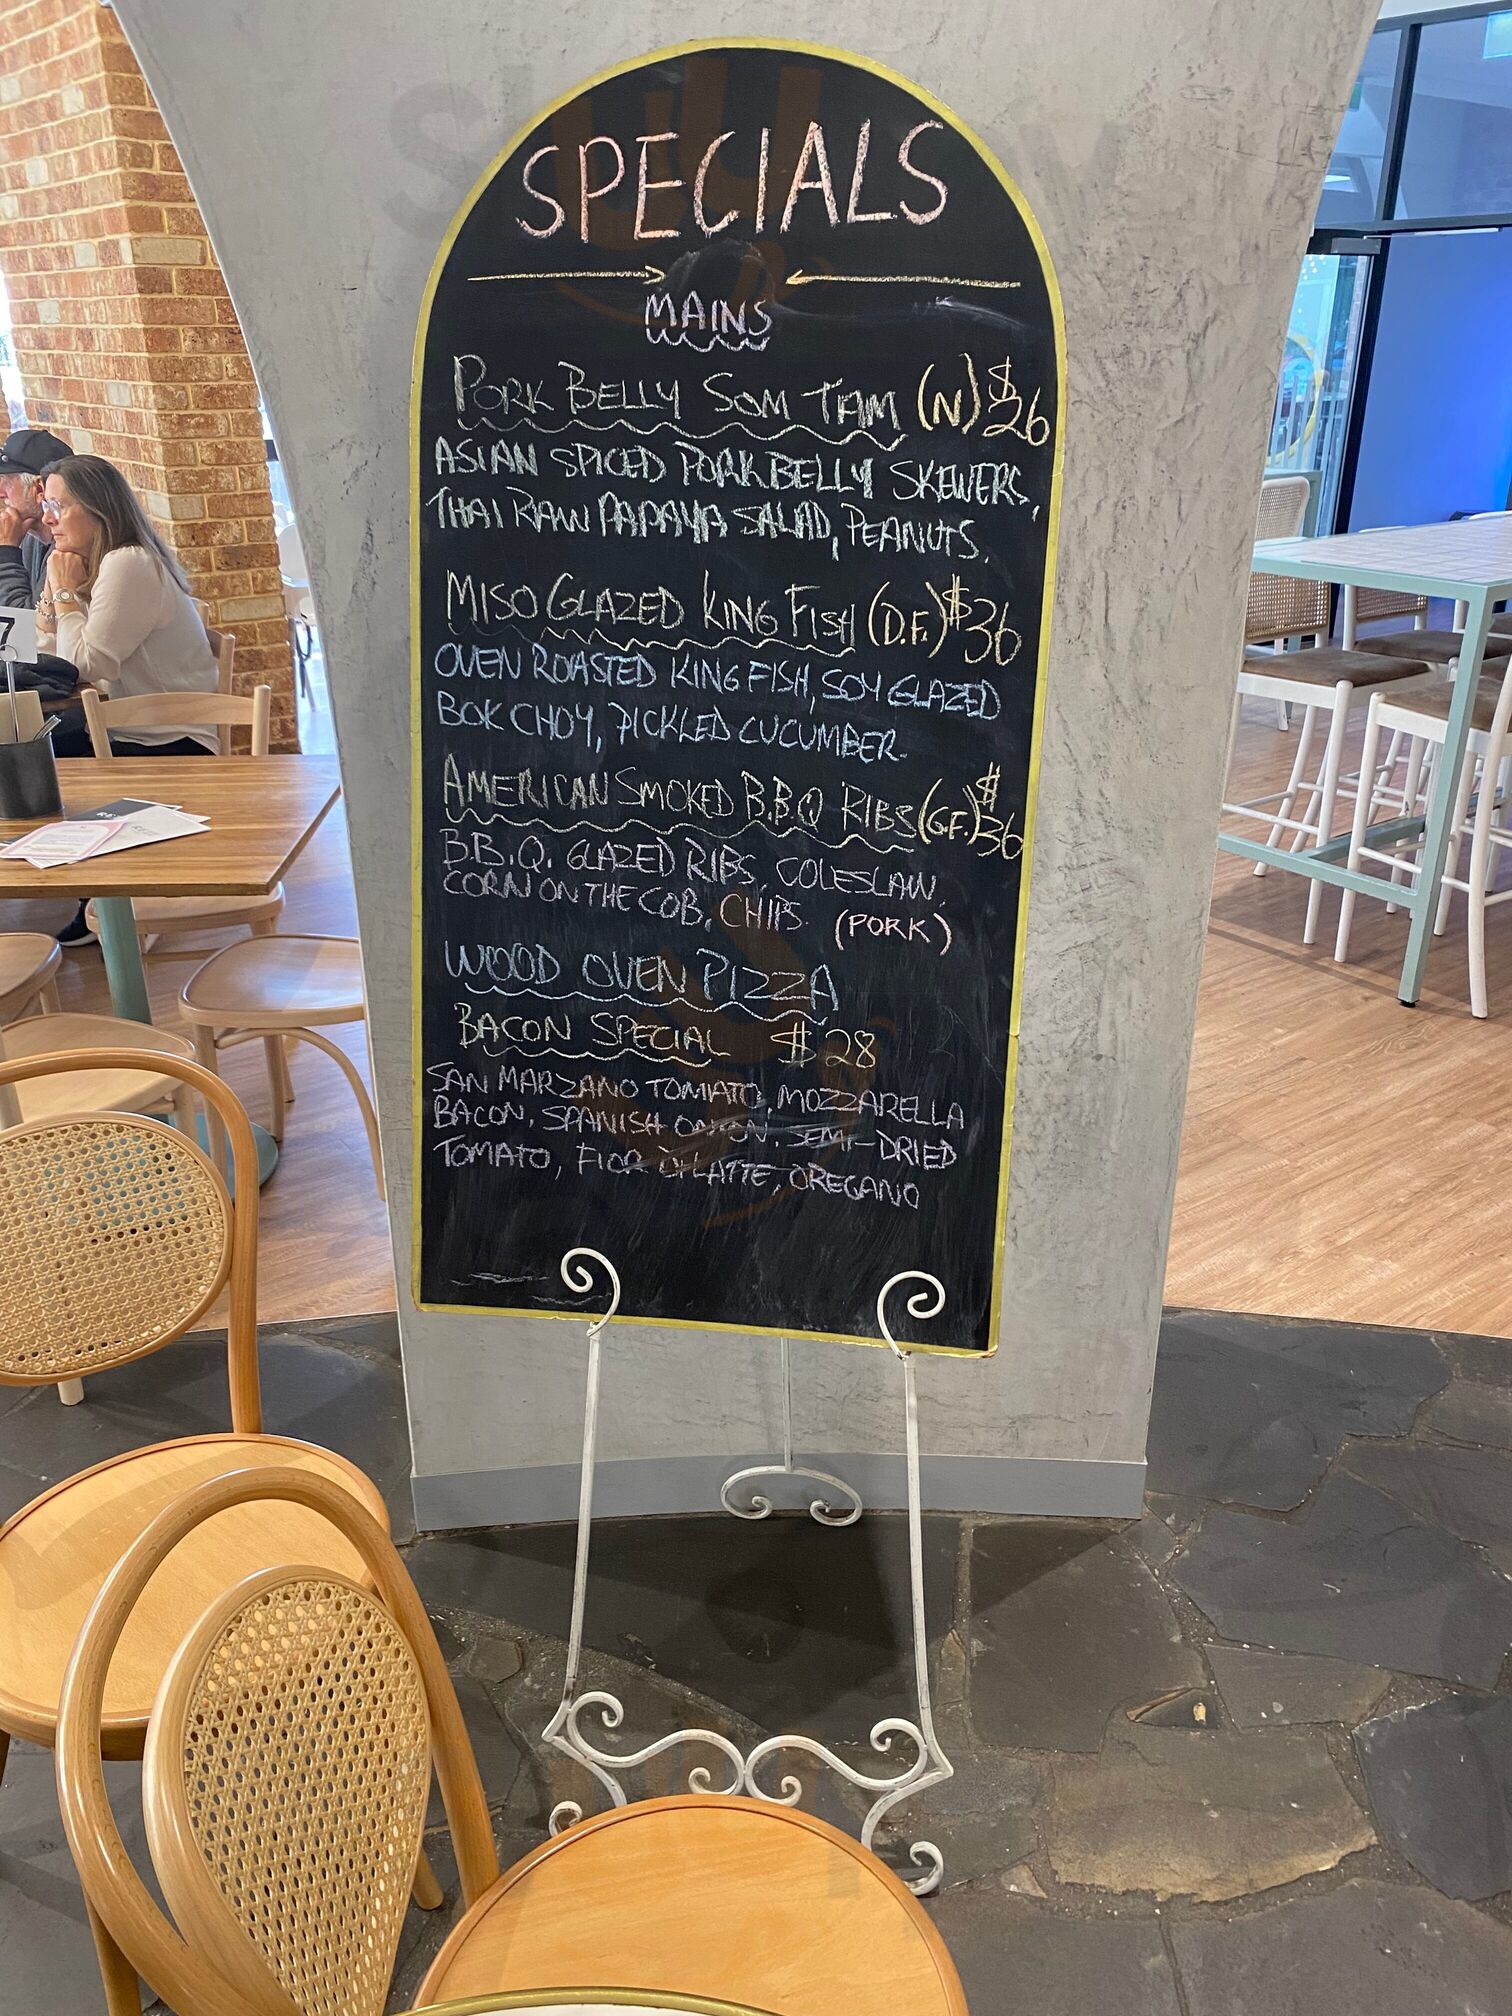 SPECIALS
MAINS
PORK BELLY SOM TAM (N) $26
ASIAN SPICED PORK BELLY SKEWERS,
THAI RAW PAPAYA SALAD, PEANUTS.
MISO GLAZED KING FISH (D.F.) $36
OVEN ROASTED KING FISH, SOY GLAZED
BOK CHOY, PICKLED CUCUMBER.
AMERICAN SMOKED B.B.Q RIBS (G.F.) $36
B.B.Q. GLAZED RIBS, COLESLAW,
CORN ON THE COB, CHIPS. (PORK)
WOOD OVEN PIZZA
BACON SPECIAL $28
SAN MARZANO TOMATO, MOZZARELLA
BACON, SPANISH ONION, SEMI-DRIED
TOMATO, FIOR DI LATTE, OREGANO
7